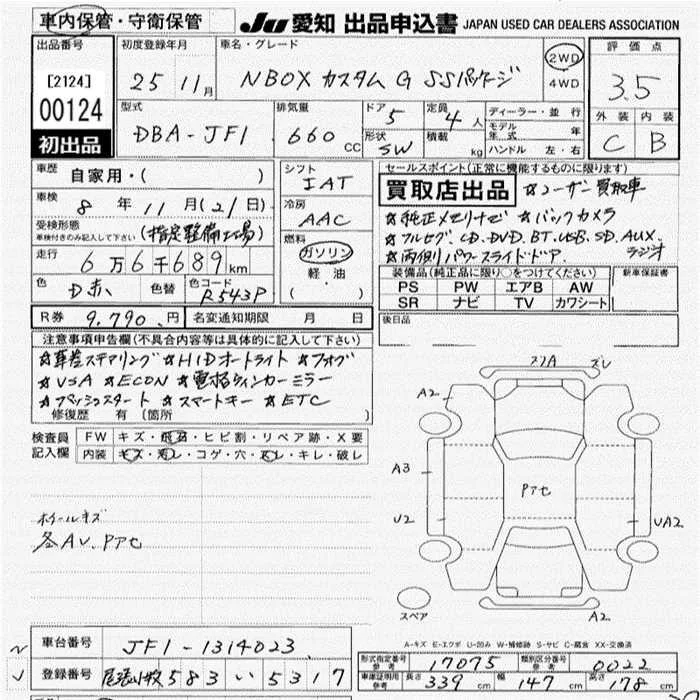 車内保管・守衛保管 JU 愛知 出品申込書 JAPAN USED CAR DEALERS ASSOCIATION
出品番号 初度登録年月 車名・グレード 2WD 評価点
[2124] 25 11月 NBOX カスタム G SSパッケージ 4WD 3.5
00124 型式 排気量 ドア 5 定員 4人 ディーラー・並行 外装 内装
DBA-JF1 660CC 形状 SW 積載 kg モデル年式 年 C B
初出品 ハンドル 左・右
車歴 自家用・( ) シフト IAT セールスポイント(正常に機能するものに限ります)
車検 8年11月(21日) 冷房 AAC 買取店出品 ☆ユーザー買取車
受検形態 車検付きのみ記入して下さい (指定整備工場) ☆純正メモリナビ ☆バックカメラ
燃料 ガソリン ☆フルセグ.CD.DVD.BT.USB.SD.AUX.ラジオ
走行 6万6千689km 軽油 ☆両側パワースライドドア.
色 D赤 色替 色コード R543P ( ) 装備品(純正品に限り○をつけてください) 新車保証書
PS PW エアB AW
SR ナビ TV カワシート
R券 9,790.円 名変通知期限 月 日 後日品
注意事項申告欄(不具合内容等は具体的に記入して下さい)
☆革巻ステアリング ☆HIDオートライト ☆フォグ
☆VSA ☆ECON ☆電格ウィンカーミラー
☆プッシュスタート ☆スマートキー ☆ETC
修復歴 有 (箇所 )
検査員記入欄 FW キズ・飛石・ヒビ割・リペア跡・X要
内装 キズ・汚レ・コゲ・穴・スレ・キレ・破レ
スリA ズレ
A2
A3 Pアセ
U2 UA2
ホイールキズ
各AU.Pアセ
スペア A2
A-キズ E-エクボ U-凹み W-補修跡 S-サビ C-腐食 XX-交換済
車台番号 JF1-1314023
登録番号 尾張小牧 583 い 5317
型式指定番号 参考 17075 類別区分番号 参考 0022
車庫証明用 参考 長さ 339cm 幅 147cm 高さ 178cm